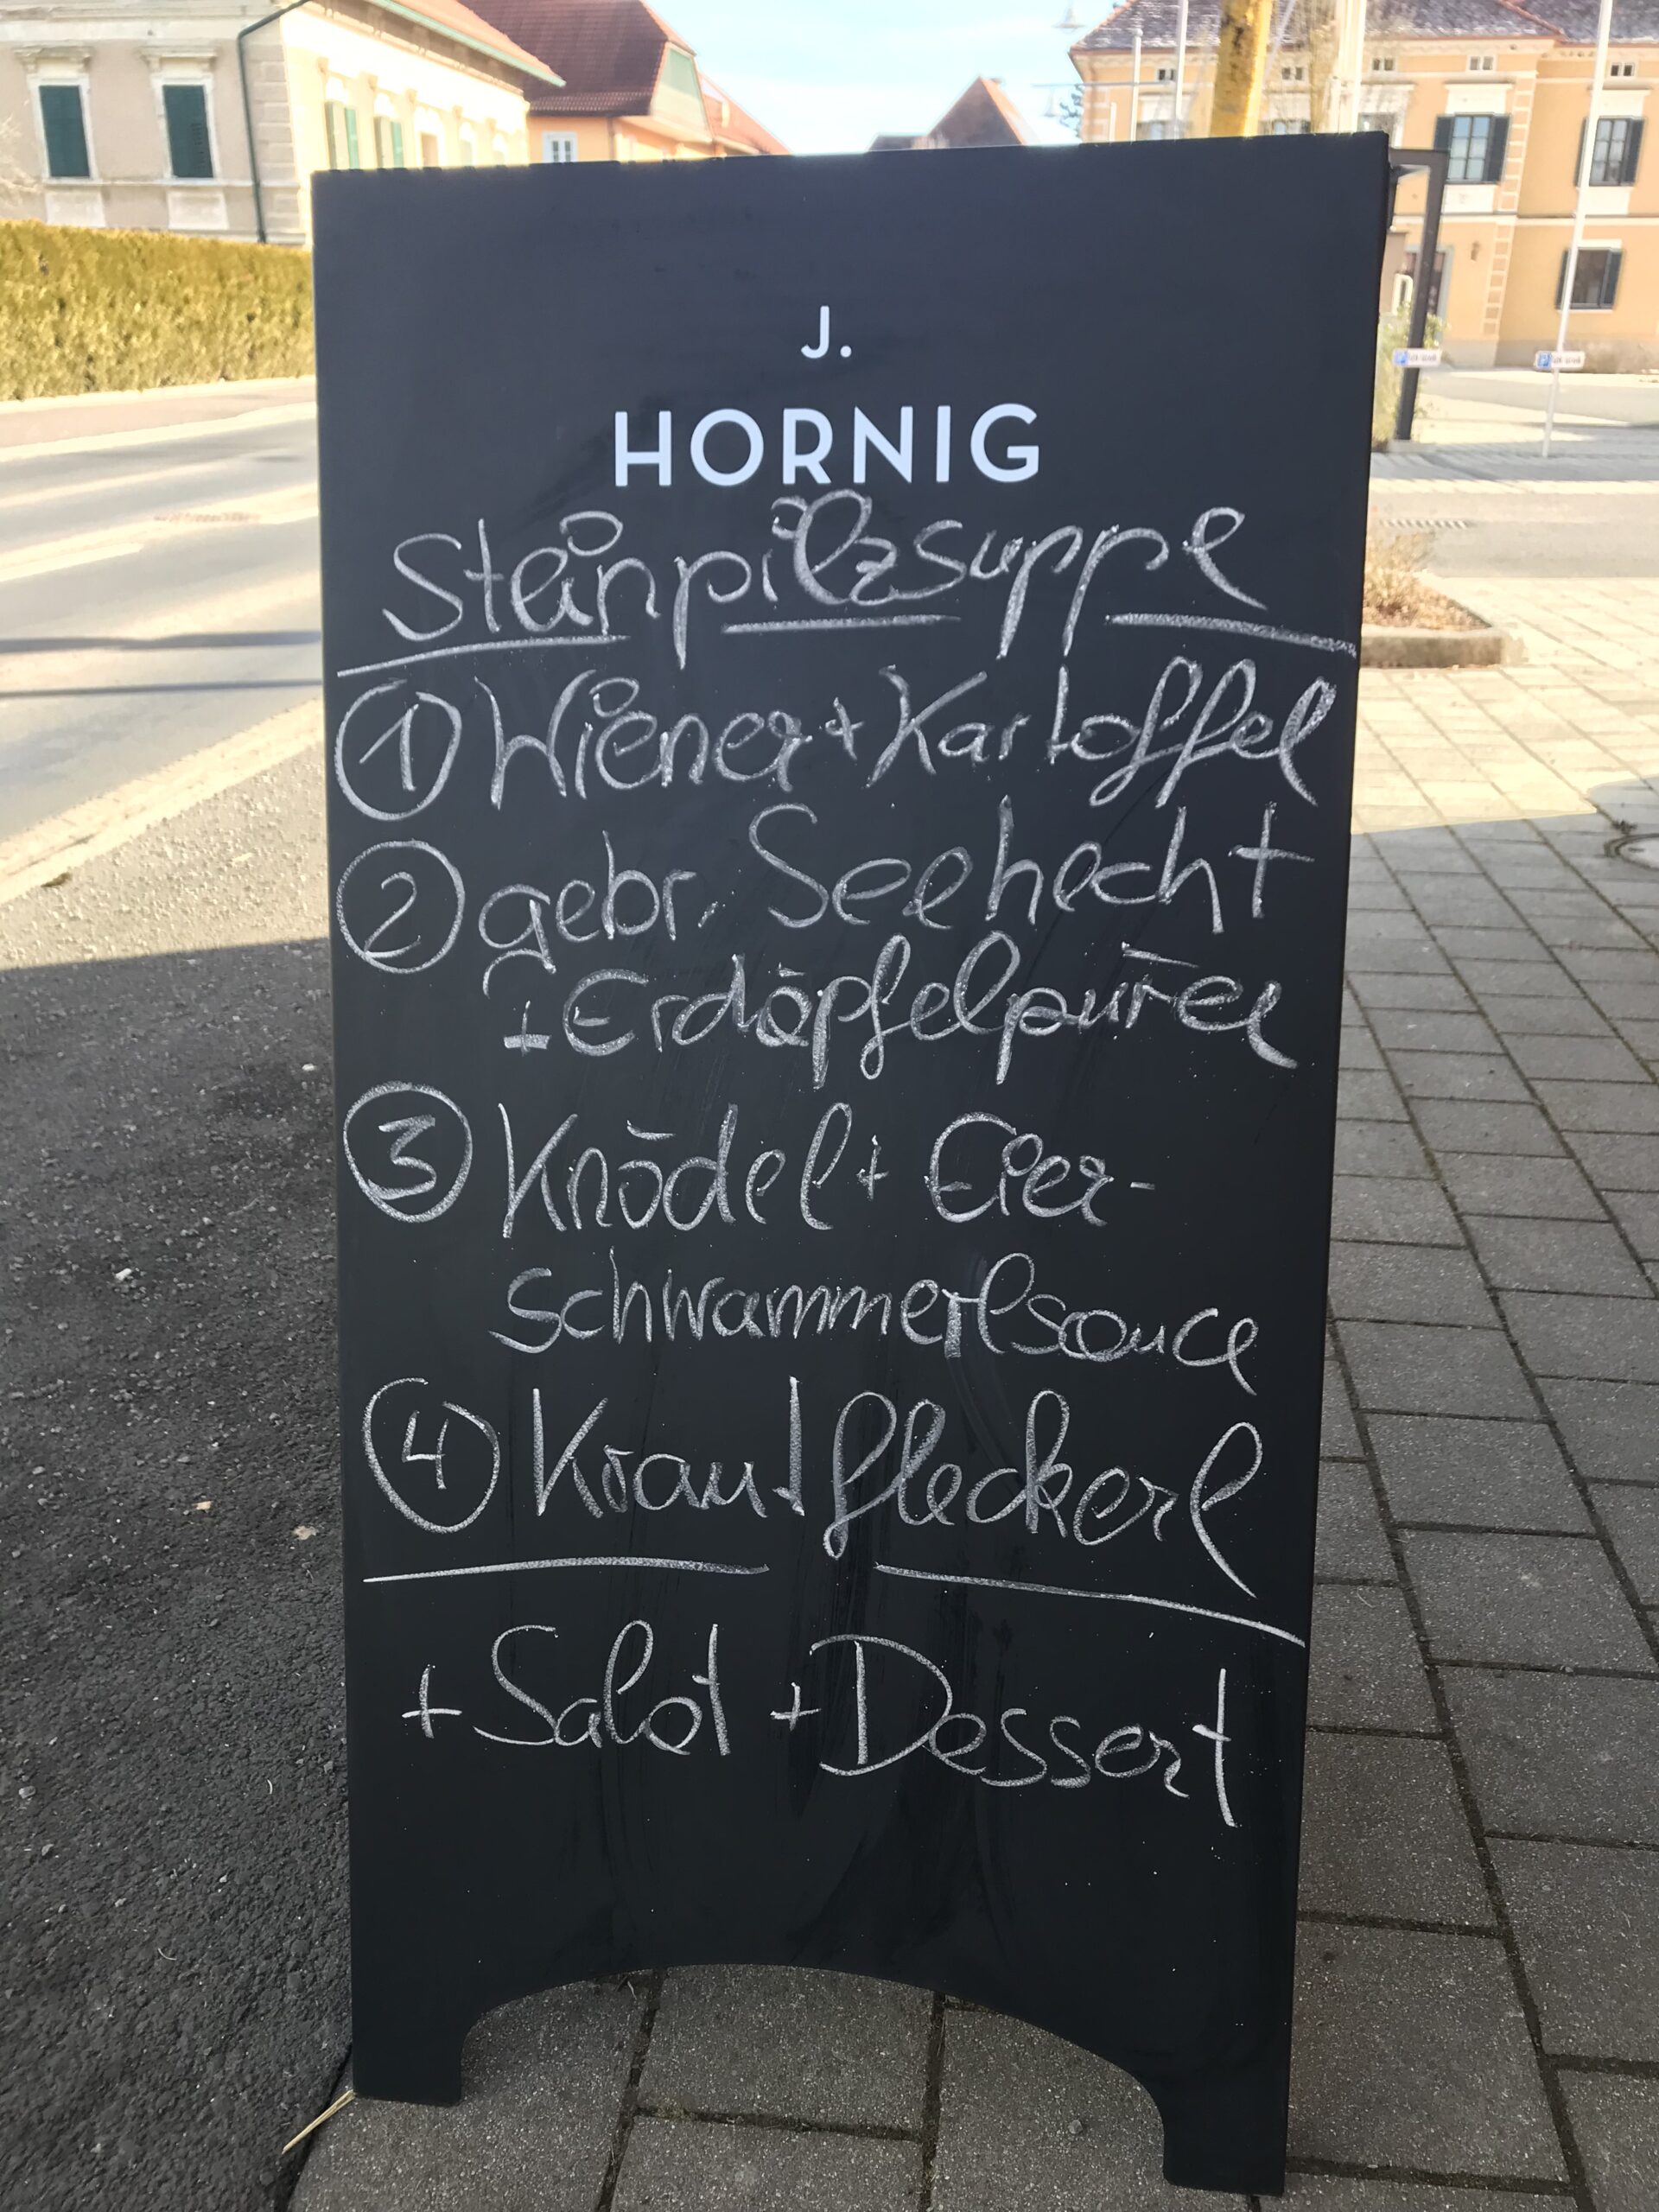 J.
HORNIG
Steinpilzsuppe
1 Wiener + Kartoffel
2 gebr. Seehecht
+ Erdäpfelpüree
3 Knödel + Eier-
schwammerlsauce
4 Krautfleckerl
+ Salat + Dessert